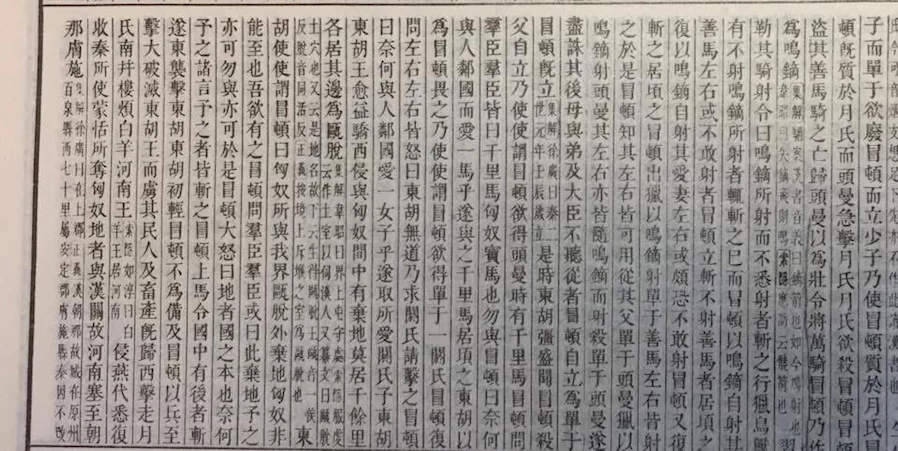 子而單于欲廢冒頓而立少子乃使冒頓質於月氏冒
頓旣質於月氏而頭曼急擊月氏月氏欲殺冒頓冒頓
盜其善馬騎之亡歸頭曼以為壯令將萬騎冒頓乃作
為鳴鏑 習
勒其騎射令曰鳴鏑所射而不悉射者斬之行獵鳥獸
有不射鳴鏑所射者輒斬之已而冒頓以鳴鏑自射其
善馬左右或不敢射者冒頓立斬不射善馬者居頃之
復以鳴鏑自射其愛妻左右或頗恐不敢射冒頓又復
斬之居頃之冒頓出獵以鳴鏑射單于善馬左右皆射
之於是冒頓知其左右皆可用從其父單于頭曼獵以
鳴鏑射頭曼其左右亦皆隨鳴鏑而射殺單于頭曼遂
盡誅其後母與弟及大臣不聽從者冒頓自立為單于
冒頓旣立集解徐廣曰秦二世元年壬辰歲立是時東胡彊盛聞冒頓殺
父自立乃使使謂冒頓欲得頭曼時有千里馬冒頓問
羣臣羣臣皆曰千里馬匈奴寶馬也勿與冒頓曰奈何
與人鄰國而愛一馬乎遂與之千里馬居頃之東胡以
為冒頓畏之乃使使謂冒頓欲得單于一閼氏冒頓復
問左右左右皆怒曰東胡無道乃求閼氏請擊之冒頓
曰奈何與人鄰國愛一女子乎遂取所愛閼氏予東胡
東胡王愈益驕西侵與匈奴間中有棄地莫居千餘里
各居其邊為甌脫集解韋昭曰界上屯守處索隱服虔云作土室以伺漢人又纂文曰甌脫土穴也又云是地名故下云生得甌脫王 東
胡使使謂冒頓曰匈奴所與我界甌脫外棄地匈奴非
能至也吾欲有之冒頓問羣臣羣臣或曰此棄地予之
亦可勿與亦可於是冒頓大怒曰地者國之本也奈何
予之諸言予之者皆斬之冒頓上馬令國中有後者斬
遂東襲擊東胡東胡初輕冒頓不為備及冒頓以兵至
擊大破滅東胡王而虜其民人及畜產旣歸西擊走月
氏南并樓煩白羊河南王索隱如淳曰白羊王居河南侵燕代悉復
收秦所使蒙恬所奪匈奴地者與漢關故河南塞至朝
那膚施集解徐廣曰在上郡正義漢朝那故城在原州百泉縣西七十里屬安定郡膚施縣秦因不改